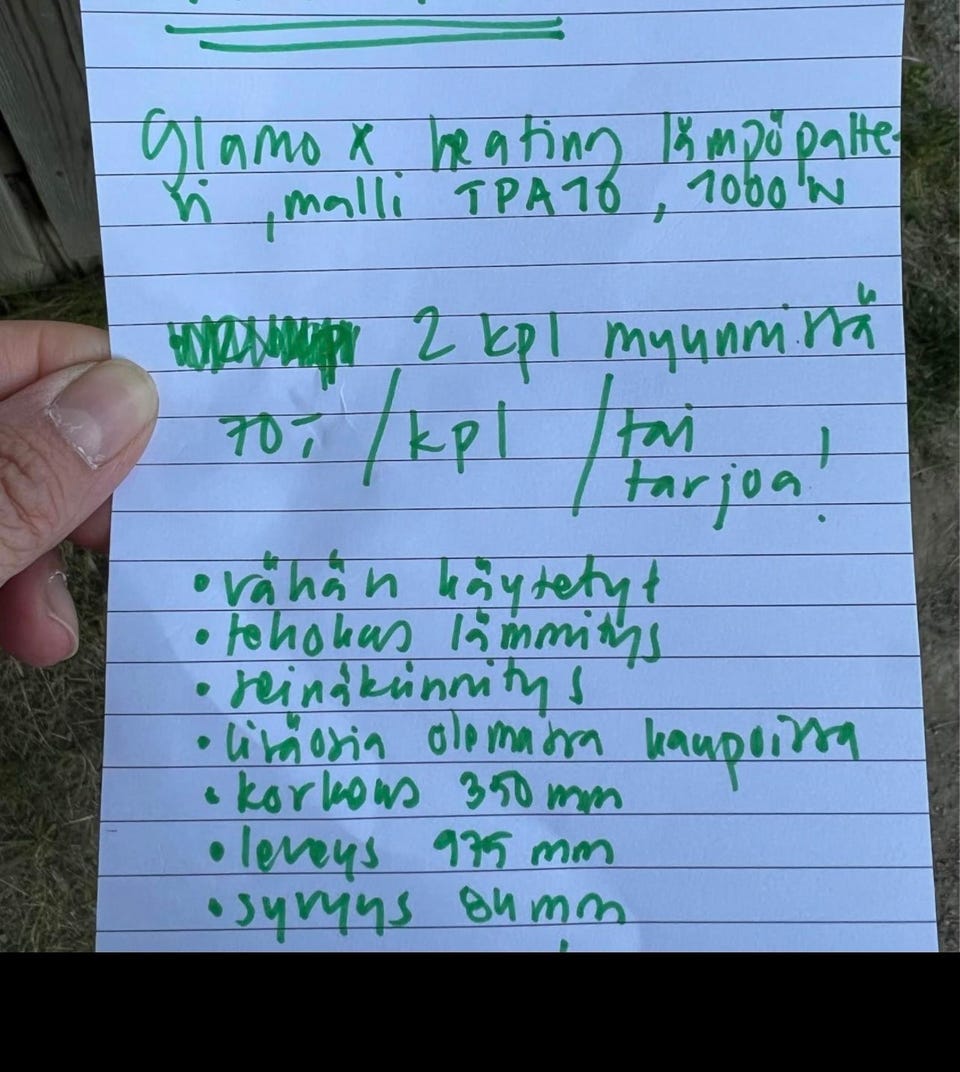 Glamox heating lämpöpatte-
ri, malli TPA10, 1000W
2 kpl myynnissä
70,- / kpl / tai
tarjoa!
• vähän käytetyt
• tehokas lämmitys
• seinäkiinnitys
• lisäosia olemassa kaupoissa
• korkeus 350 mm
• leveys 975 mm
• syvyys 84 mm